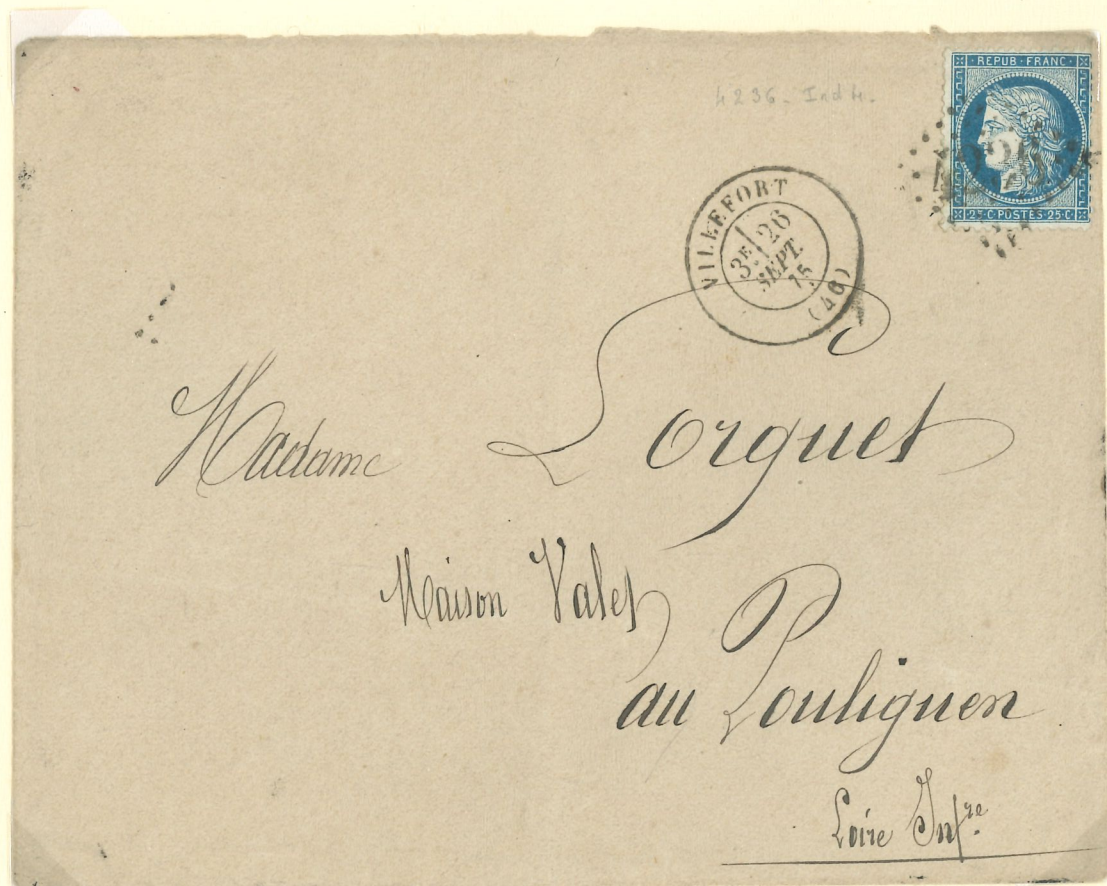 4236 - Ind 4.
REPUB · FRANC
4236
25·C·POSTES·25·C
VILLEFORT
3E 26
SEPT.
75
(46)
Madame Lorguet
Maison Valet
au Pouliguen
Loire Infre.